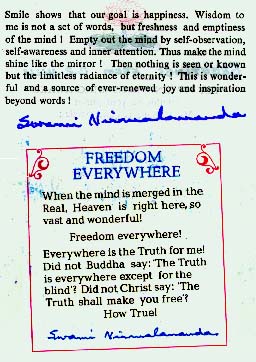 Smile shows that our goal is happiness. Wisdom to
me is not a act of words, but freshness and emptiness
of the mind ! Empty out the mind by self-observation,
self-awareness and inner attention. Thus make the mind
shine like the mirror ! Then nothing is seen or known
but the limitless radiance of eternity ! This is wonder-
ful and a source of ever-renewed joy and inspiration
beyond words !
Swami Nirmalananda
FREEDOM
EVERYWHERE
When the mind is merged in the
Real, Heaven is right here, so
vast and wonderful!
Freedom everywhere!
Everywhere is the Truth for me!
Did not Buddha say: 'The Truth
is everywhere except for the
blind'? Did not Christ say: 'The
Truth shall make you free'?
How True!
Swami Nirmalananda